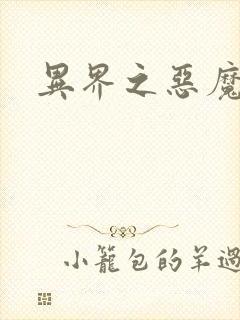 異界之惡魔
小籠包的羊過